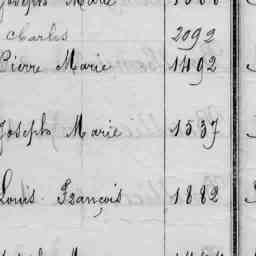 Joseph Marie
Charles 2092
Pierre Marie 1492
Joseph Marie 1537
Louis François 1882